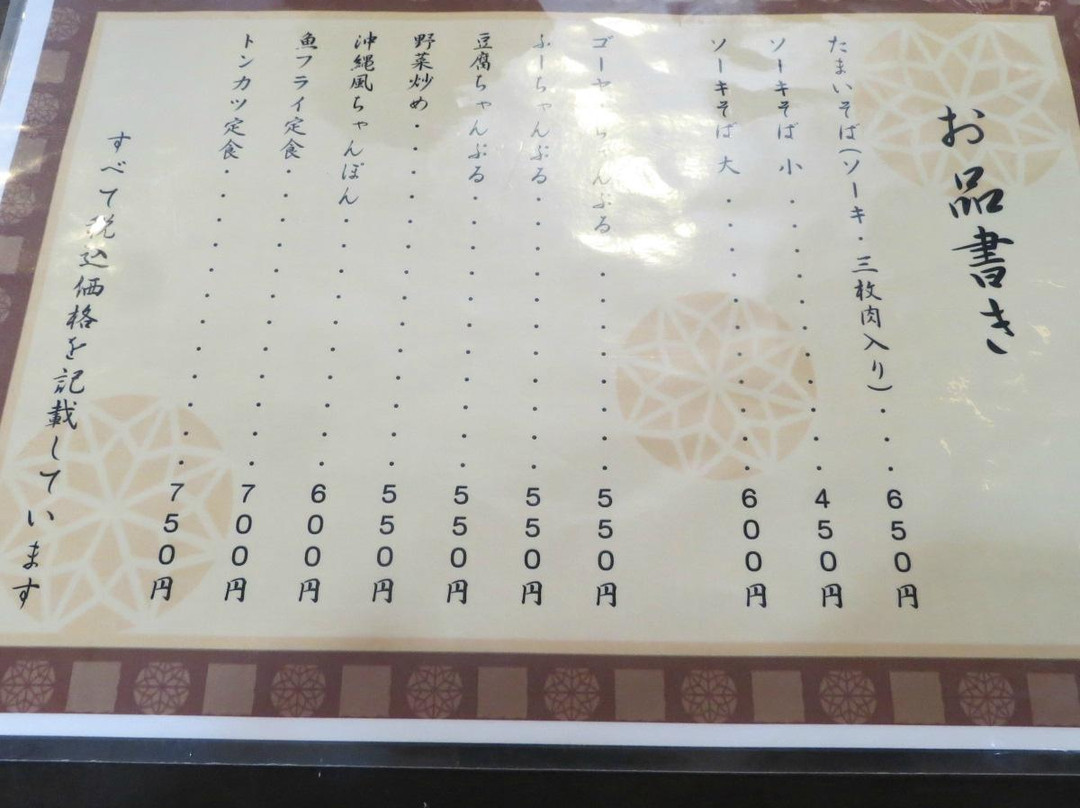 お品書き
たまいそば(ソーキ・三枚肉入り)・・・650円
ソーキそば 小・・・・・・・・・・450円
ソーキそば 大・・・・・・・・・・600円
ゴーヤーちゃんぷる・・・・・・・・550円
ふーちゃんぷる・・・・・・・・・・550円
豆腐ちゃんぷる・・・・・・・・・・550円
野菜炒め・・・・・・・・・・・・・550円
沖縄風ちゃんぽん・・・・・・・・・600円
魚フライ定食・・・・・・・・・・・700円
トンカツ定食・・・・・・・・・・・750円
すべて税込価格を記載しています